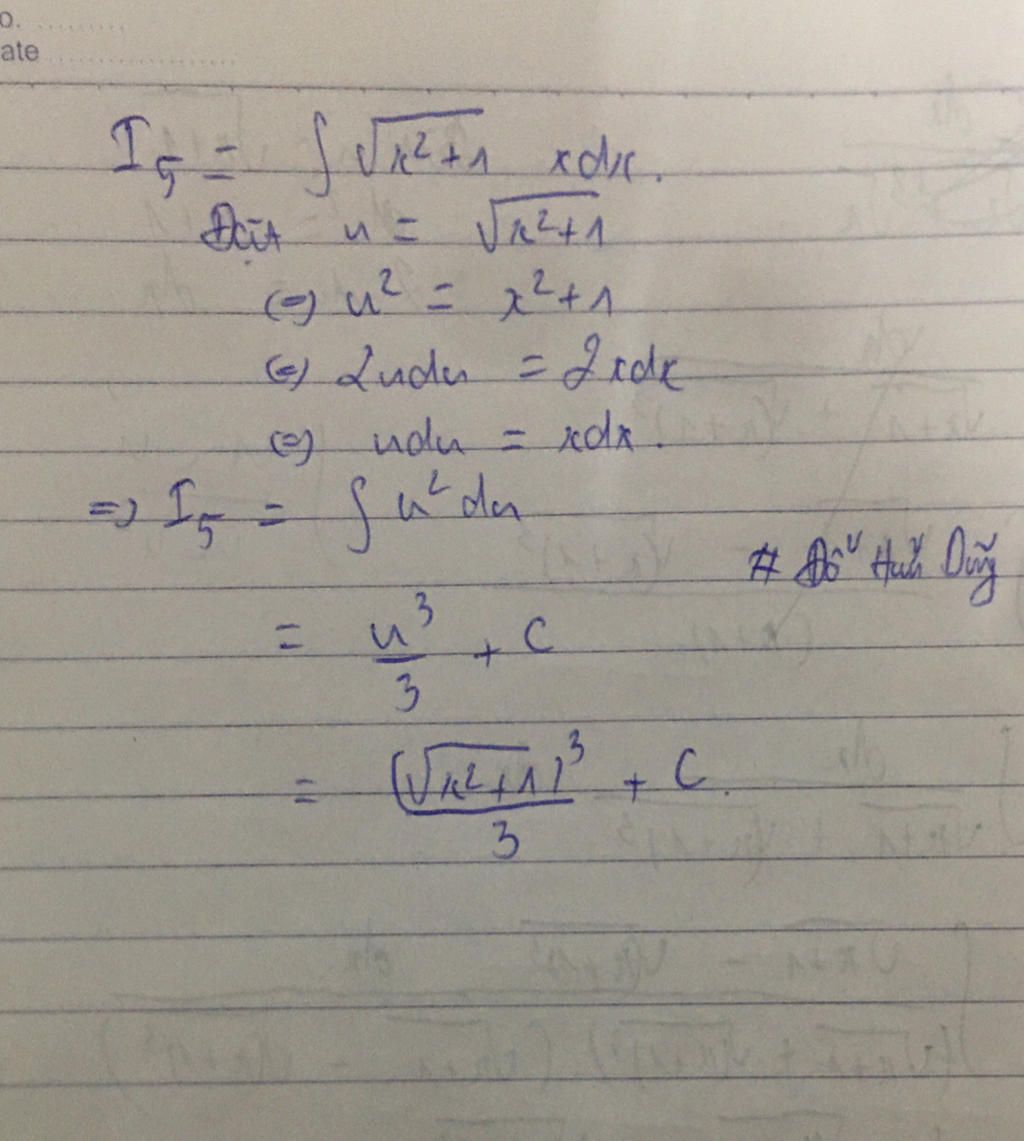 o. ..........
ate ....................
I₅ = ∫ √(x²+1) xdx.
Đặt u = √(x²+1)
(=) u² = x²+1
(=) 2udu = 2xdx
(=) udu = xdx.
=) I₅ = ∫ u² du
# Đỗ Hữu Dũng
= u³/3 + C
= (√(x²+1))³/3 + C.